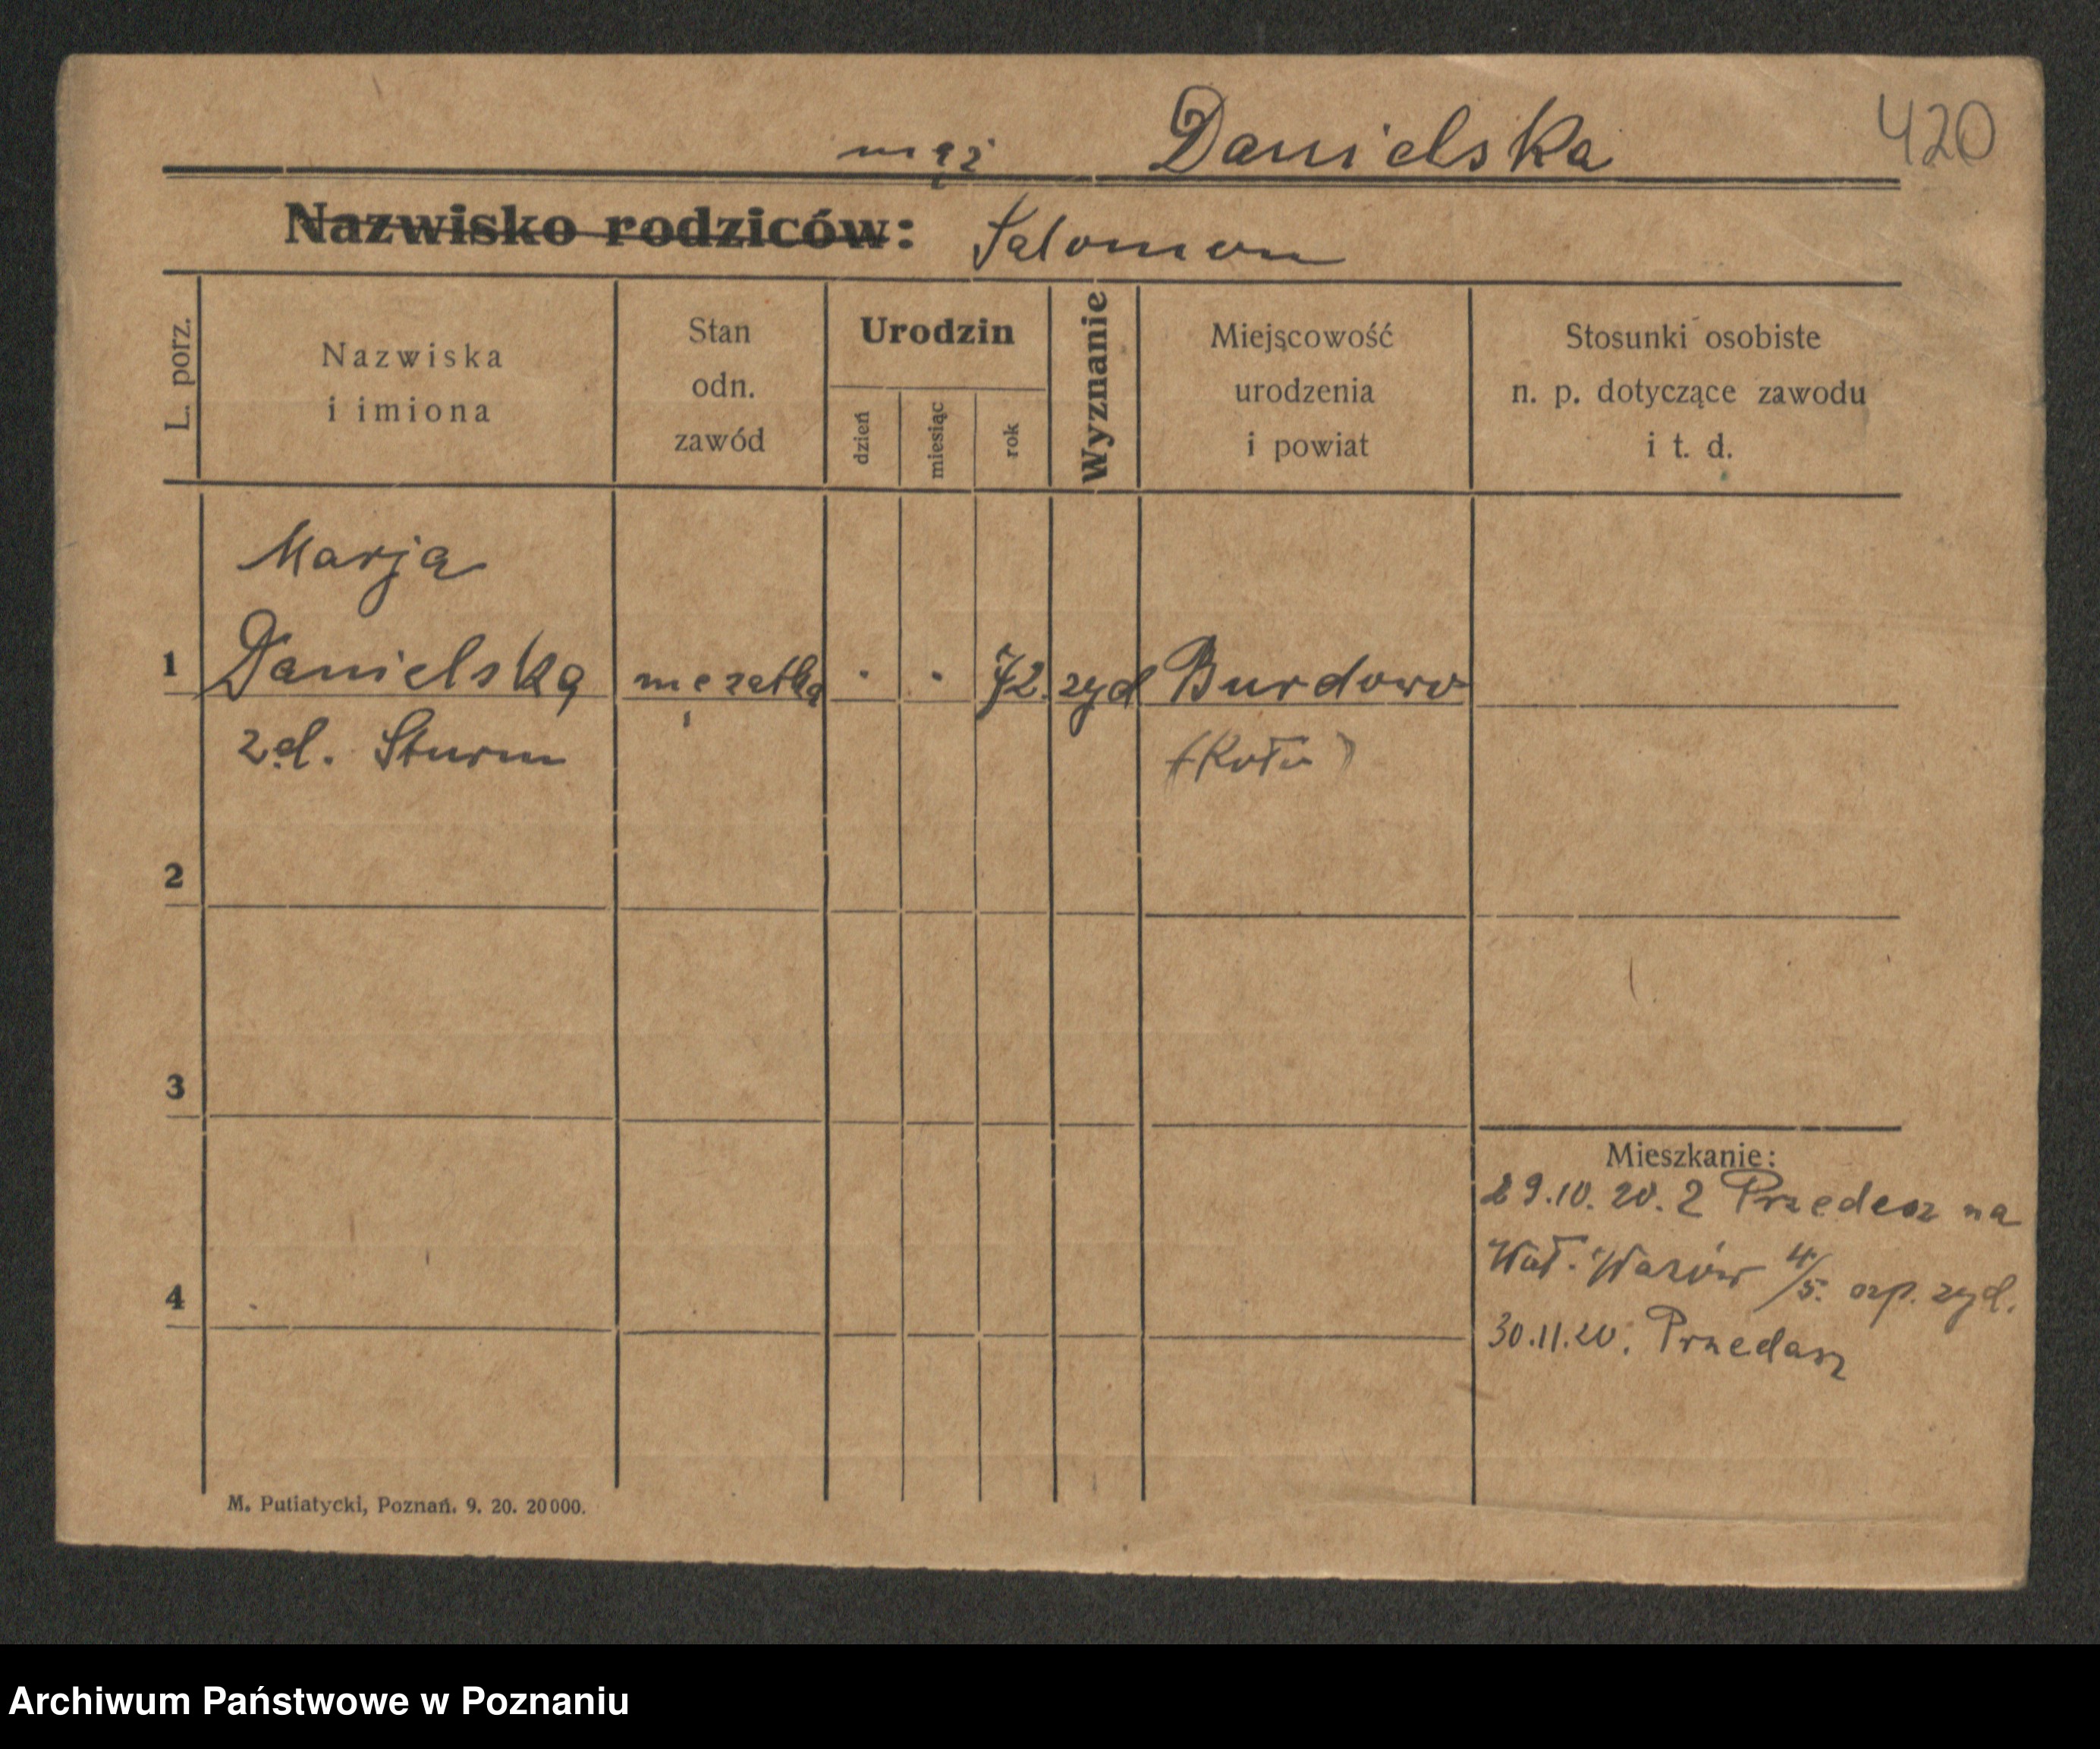 420
mąż Danielska
Nazwisko rodziców: Salomon
L. porz.
Nazwiska
i imiona
Stan
odn.
zawód
Urodzin
dzień
miesiąc
rok
Wyznanie
Miejscowość
urodzenia
i powiat
Stosunki osobiste
n. p. dotyczące zawodu
i t. d.
Marja
1 Danielska mężatka . . 72. zyd Burdowo
zd. Sturm (Koło)
2
3
Mieszkanie:
29.10.20. z Przedecz na
4/5. zyd.
4
30.11.20. Przedasz
M. Putiatycki, Poznań. 9. 20. 20000.
Archiwum Państwowe w Poznaniu